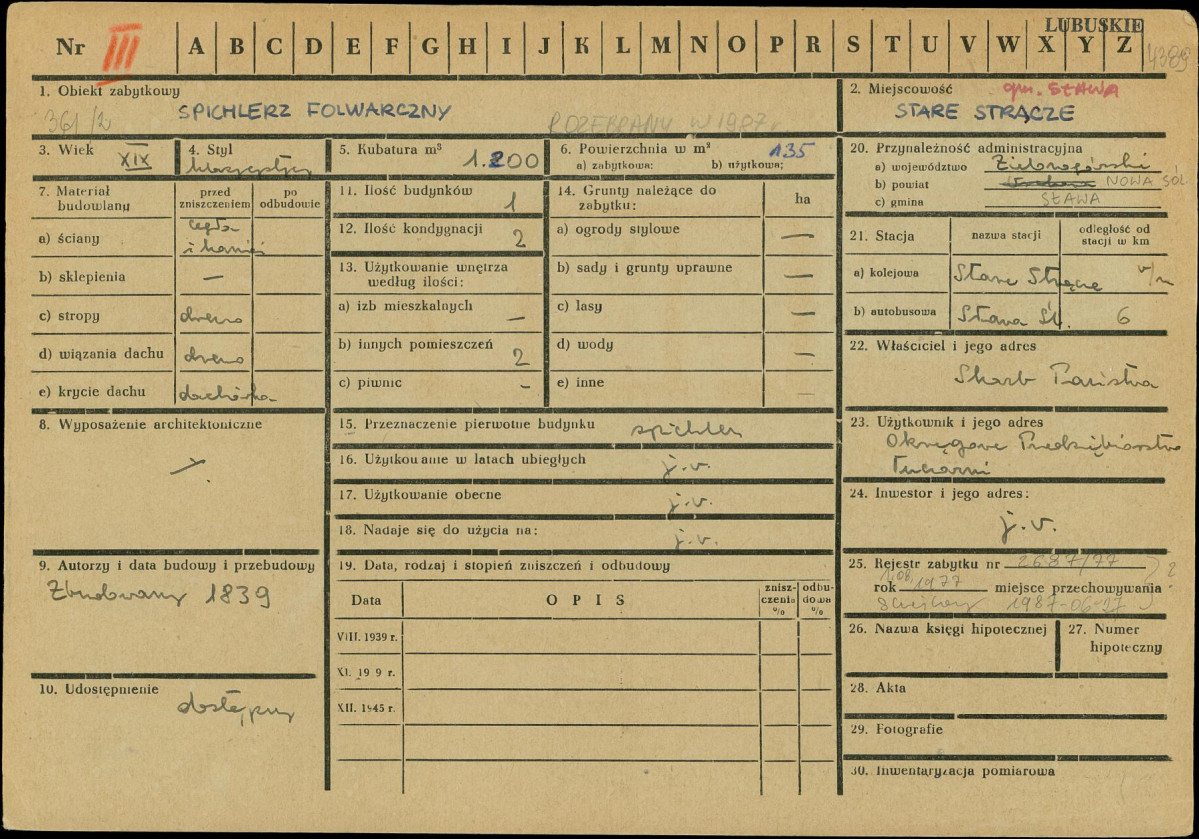 LUBUSKIE
Nr III A B C D E F G H I J K L M N O P R S T U V W X Y Z
4389
1. Obiekt zabytkowy
SPICHLERZ FOLWARCZNY
361/2
ROZEBRANY W 1987 r
2. Miejscowość gm. SŁAWA
STARE STRĄCZE
3. Wiek XIX
4. Styl
5. Kubatura m³ 1.200
6. Powierzchnia w m²
a) zabytkowa: b) użytkowa: 135
7. Materiał budowlany
przed zniszczeniem
po odbudowie
a) ściany cegła i kamień
b) sklepienia —
c) stropy drewno
d) wiązania dachu drewno
e) krycie dachu dachówka
8. Wyposażenie architektoniczne
9. Autorzy i data budowy i przebudowy
Zbudowany 1839
10. Udostępnienie
dostępny
11. Ilość budynków 1
12. Ilość kondygnacji 2
13. Użytkowanie wnętrza według ilości:
a) izb mieszkalnych —
b) innych pomieszczeń 2
c) piwnic -
14. Grunty należące do zabytku:
ha
a) ogrody stylowe —
b) sady i grunty uprawne —
c) lasy —
d) wody —
e) inne —
15. Przeznaczenie pierwotne budynku spichlerz
16. Użytkowanie w latach ubiegłych j.w.
17. Użytkowanie obecne j.w.
18. Nadaje się do użycia na: j.w.
19. Data, rodzaj i stopień zniszczeń i odbudowy
Data
OPIS
znisz-
czenia
%
odbu-
dowa
%
VIII. 1939 r.
XI. 19 9 r.
XII. 1945 r.
20. Przynależność administracyjna
a) województwo Zielonogórskie
b) powiat NOWA SÓL
c) gmina SŁAWA
21. Stacja
nazwa stacji
odległość od
stacji w km
a) kolejowa Stare Strącze
b) autobusowa Sława Śl. 6
22. Właściciel i jego adres
Skarb Państwa
23. Użytkownik i jego adres
Okręgowe Przedsiębiorstwo
Tuczarni
24. Inwestor i jego adres:
j.w.
25. Rejestr zabytku nr 2687/77
rok 1.08.1977 miejsce przechowywania ?
1987-06-27
26. Nazwa księgi hipotecznej
27. Numer
hipoteczny
28. Akta
29. Fotografie
30. Inwentaryzacja pomiarowa